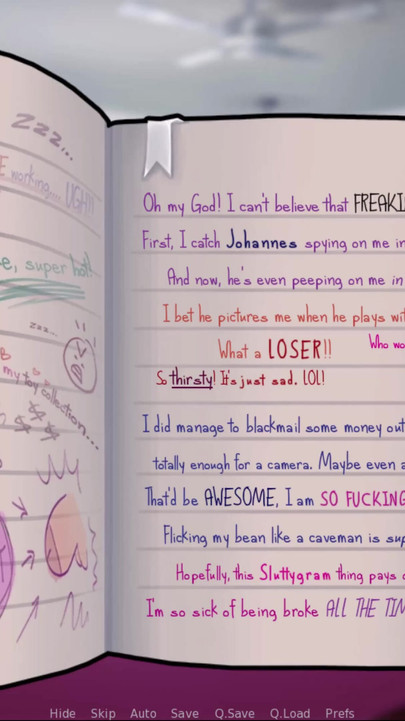 zzz...
E working... UGH!!
e, super hot!
zzz...
my toy collection...
Oh my God! I can't believe that FREAKI
First, I catch Johannes spying on me in
And now, he's even peeping on me in
I bet he pictures me when he plays wit
What a LOSER!! Who wo
So thirsty! It's just sad. LOL!
I did manage to blackmail some money out
totally enough for a camera. Maybe even a
That'd be AWESOME, I am SO FUCKING
Flicking my bean like a caveman is sup
Hopefully, this Sluttygram thing pays o
I'm so sick of being broke ALL THE TIM
Hide Skip Auto Save Q.Save Q.Load Prefs